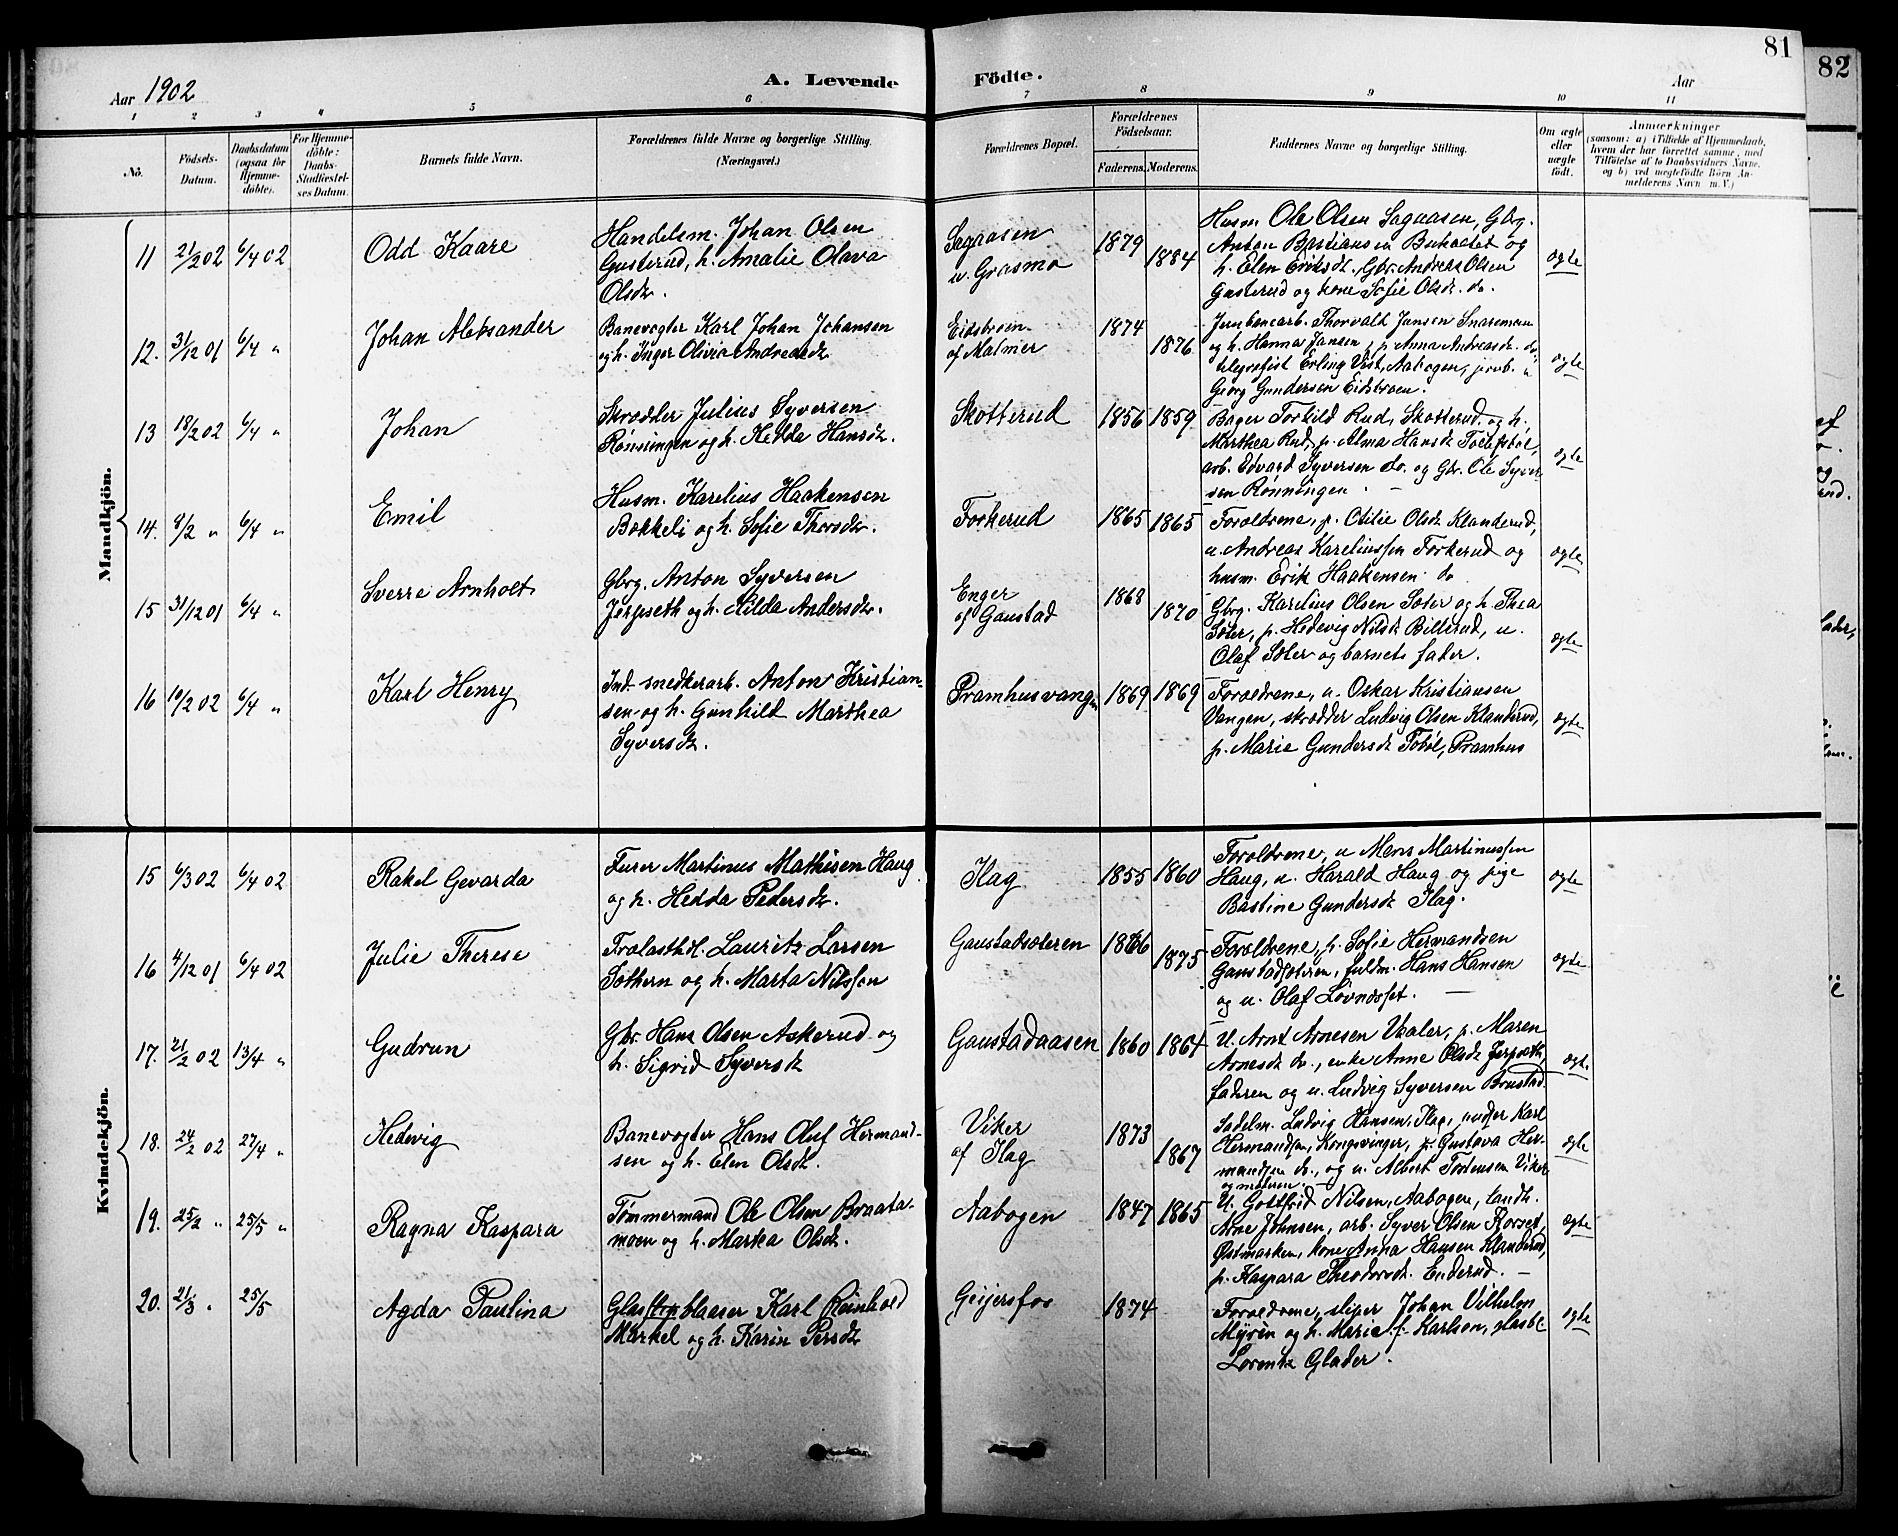 81
82
Aar 1902
A. Levende Födte.
Aar
1 2 3 4 5 6 7 8 9 10 11
No.
Födsels-Datum.
Daabsdatum (ogsaa for Hjemme-döbte).
For Hjemme-döbte: Daabs-Stadfæstel-ses Datum.
Barnets fulde Navn.
Forældrenes fulde Navne og borgerlige Stilling. (Næringsvei.)
Forældrenes Bopæl.
Forældrenes Födselsaar.
Faderens. Moderens.
Faddernes Navne og borgerlige Stilling.
Om ægte eller uægte födt.
Anmærkninger
(saasom: a) i Tilfælde af Hjemmedaab, hvem der har forrettet samme, med Tilföielse af to Daabsvidners Navne, og b) ved uægtefödte Börn Anmelderens Navn m. V.)
Mandkjön.
11 21/2 02 6/4 02 Odd Kaare
Handelsm. Johan Olsen
Gusterud, h. Amalie Olava
Olsdr.
Sagaasen
u. Grasmo
1879 1884
Husm. Ole Olsen Sagaasen, Gbrg.
Anton Bastiansen Buhaatet og
h. Elen Eriksdt. Gbr. Andreas Olsen
Gusterud og kone Sofie Olsdt. do.
ægte
12. 31/12 01 6/4 " Johan Aleksander
Banevogter Karl Johan Johansen
og h. Inger Olivia Andreasdt.
Eidsbroen
af Malmer
1874 1876
Jernbanearb. Thorvald Jansen Snaremoen
og h. Hanna Jansen, p. Anna Andreasdt. do,
telegrafist Erling Vist, Aabogen, jernb.
Georg Gundersen Eidsbroen.
ægte
13 18/2 02 6/4 " Johan
Skrædder Julius Syversen
Rønningen og h. Hedda Hansdt.
Skotterud
1856 1859
Bager Torkild Rud, Skotterud og h.
Marthea Rud, p. Alma Hansdt
arb. Edvard Syversen do. og Gbr. Ole Syver-
sen Rønningen. —
ægte
14. 8/2 " 6/4 " Emil
Husm. Karelius Haakensen
Bækkeli og h. Sofie Thorsdr.
Torkerud
1865 1865
Forældrene, p. Otilie Olsdt Klanderud,
u. Andreas Kareliussen Torkerud og
husm. Erik Haakensen do
ægte
15 31/12 01 6/4 " Sverre Arnholt
Gbrg. Anton Syversen
Jerpseth og h. Hilda Andersdr.
Enger
af Gaustad
1868 1870
Gbrg. Karelius Olsen Sæter og h. Thea
Sæter, p. Hedevig Nilsdt Billerud, u.
Olaf Sæter og barnets fader.
ægte
16 10/2 02 6/4 " Karl Henry
Ind. snedkerarb. Anton Kristian-
sen og h. Gunhild Marthea
Syversdt.
Pramhusvangen
1869 1869
Forældrene, u. Oskar Kristiansen
Vangen, skrædder Ludvig Olsen Klanderud,
p. Marie Gundersdt Tobøl, Pramhus
ægte
Kvindekjön.
15 6/3 02 6/4 02 Rakel Gevarda
Furer Martinus Mathisen Haug
og h. Hedda Pedersdr.
Ilag
1855 1860
Forældrene, u Mens Martinussen
Haug, u. Harald Haug og pige
Bastine Gundersdt Ilag.
ægte
16 4/12 01 6/4 02 Julie Therese
Lauritz Larsen
Sæthern og h. Marta Nilssen
Gaustadsæteren
1866 1875
Forældrene, p. Sofie Hermandsen
Gaustadsæteren, fuldm. Hans Hansen
og u. Olaf Løvnæsset. —
ægte
17. 21/2 02 13/4 " Gudrun
Gbr. Hans Olsen Askerud og
h. Sigrid Syversdt
Gaustadaasen
1860 1864
U. Arnt Arnesen Vaaler, p. Maren
Arnesdt do., enke Anne Olsdt Jerpseth,
faderen og u. Ludvig Syversen Brustad.
ægte.
18. 24/2 02 27/4 " Hedvig
Banevogter Hans Oluf Hermand-
sen og h. Elen Olsdt.
Viker
af Ilag
1873 1867
Sadelm. Ludvig Hansen, Ilag, Karl
Hermandsen, Kongsvinger, p. Gustava Her-
mandsen do., og u. Albert Torstensen Viker
og moderen. —
ægte
19. 25/2 " 25/5 " Ragna Kaspara
Tømmermand Ole Olsen Braata-
moen og h. Martea Olsdt.
Aabogen
1847 1865
U. Gottfrid Nilsen, Aabogen, landh.
Arne Johnsen, arb. Syver Olsen Rorset,
Østmarken, kone Anna Hansen Klanderud,
p. Kaspara Theodorsdt. Enderud. —
ægte
20. 21/3 " 25/5 Agda Paulina
Glasblaeser Karl Reinhold
Markel og h. Karin Persdt
Geijersfos
1874
Forældrene, sliper Johan Vilhelm
Myrén og h. Marie f. Karlson, glasbl.
Lorentz Glader.
ægte